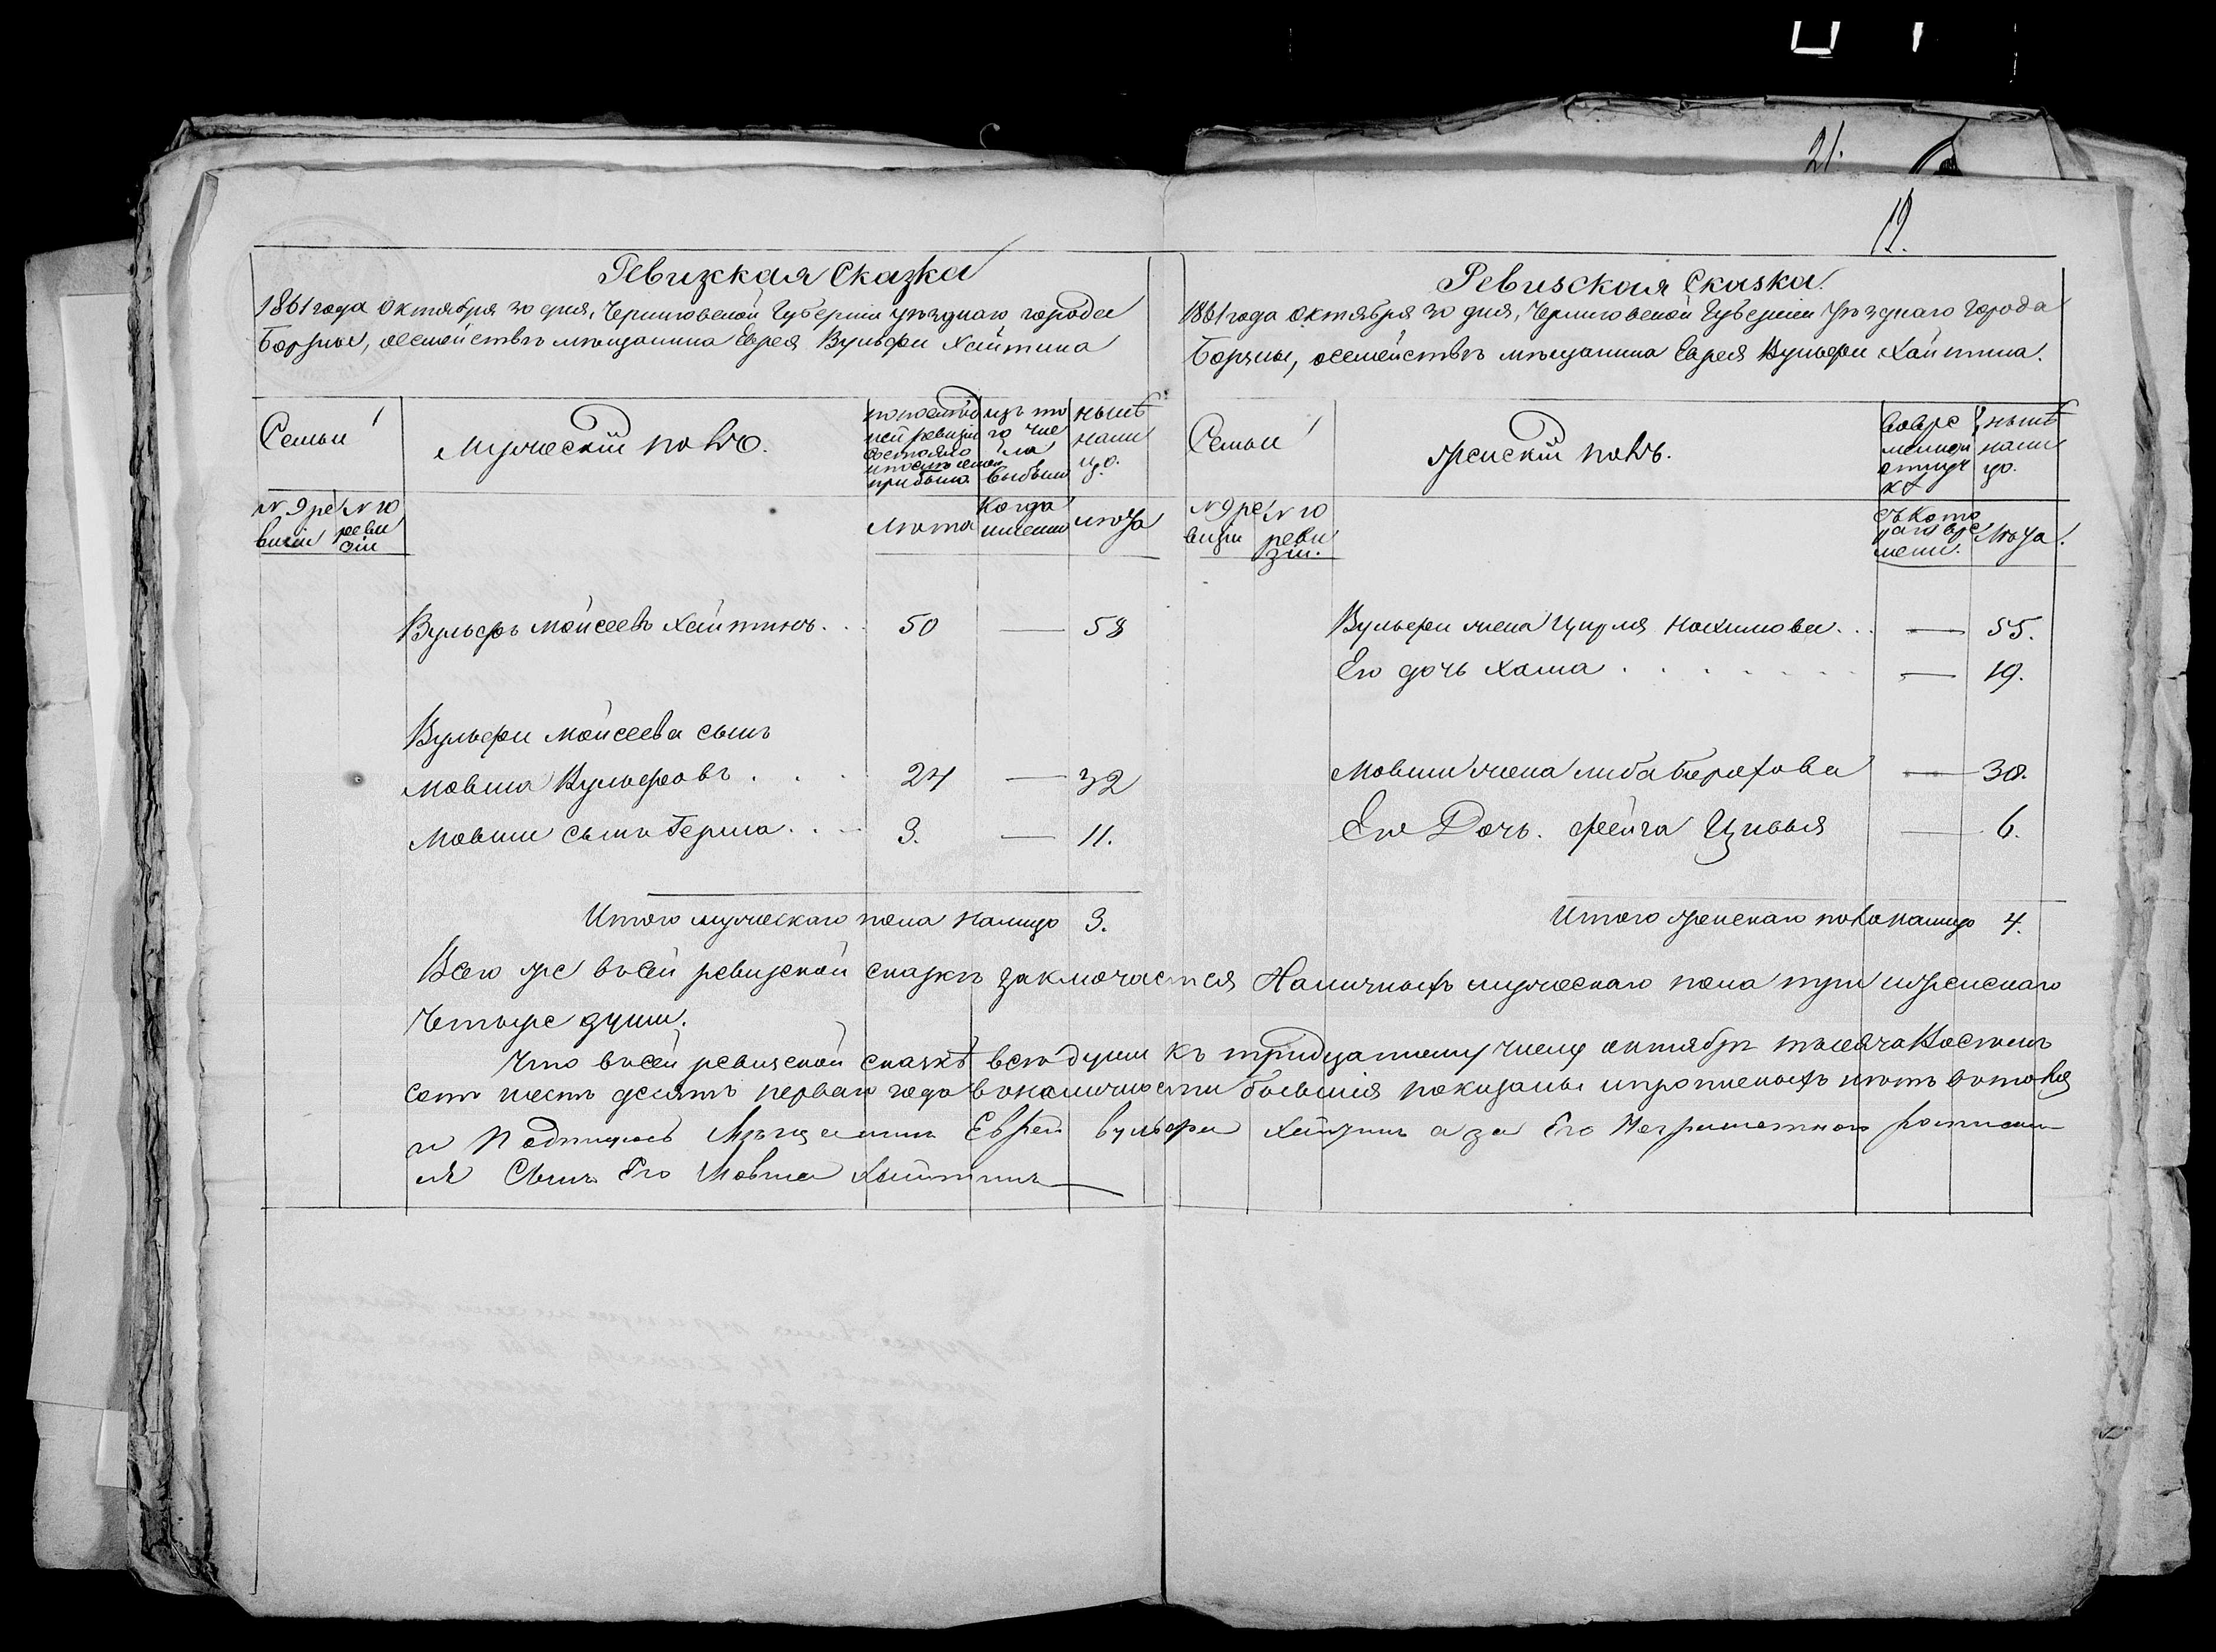 21.
12.
Ревизкая Сказка
1861 года Октября 30 дня, Черниговской Губерніи уѣзднаго города
Борзны, осемействѣ мѣщанина Еврея Вульфи Хайтина
Семьи
Мужескій полъ.
по послѣд
ней ревизіи
состояло
и послѣ оной
прибыло
изъ то
го чис
ла
выбыло
нынѣ
нали
цо.
№ 9 ре
визіи
№ 10
реви
зіи
Лѣта
Когда
имянно
Лѣта
Вульфъ Мойсеевъ Хайтинъ . .
50
—
58
Вульфи Мойсеева сынъ
Мовша Вульфовъ . . .
24
—
32
Мовши сынъ Герша . . .
3.
—
11.
Итого мужескаго пола налицо 3.
Ревизская Сказка.
1861 года Октября 30 дня, Черниговской Губерніи Уѣзднаго Города
Борзны, осемействѣ мѣщанина Еврея Вульфи Хайтина.
Семьи
Женскій полъ.
вовре
менной
отлуч
кѣ
нынѣ
нали
цо.
№ 9 ре
визіи
№ 10
реви
зіи.
съ кото
раго вре
мени.
Лѣта.
Вульфи жена Цируля Нохимова . . .
—
55.
Его дочь Хаша . . . . . . .
—
19.
Мовши жена Либа Берохова
—
30.
Его Дочь. Фейга Цивья
—
6.
Итого женскаго пола налицо 4.
Всего же въсей ревизской сказкѣ заключается Наличныхъ мужескаго пола три и женскаго
четыре души.
Что въсей ревизской сказкѣ всѣ души къ тридцатому числу октября тысяча Восемь
сотъ шесть десятъ перваго года вналичности бывшія показаны и прописныхъ нѣтъ втомъ
и Подпишусь Мѣщанинъ Еврей Вульфи Хайтинъ а за Его Неграмотнаго росписал
ся Сынъ Его Мовша Хайтинъ